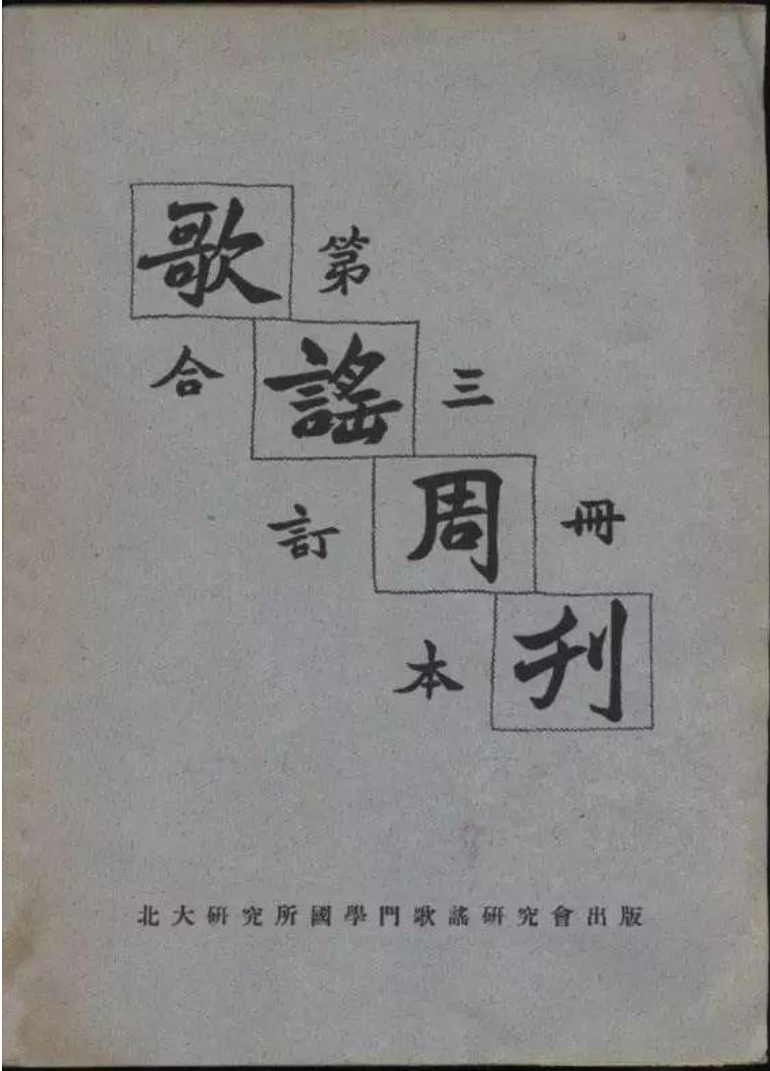 歌謠周刊
第三冊
合訂本
北大研究所國學門歌謠研究會出版